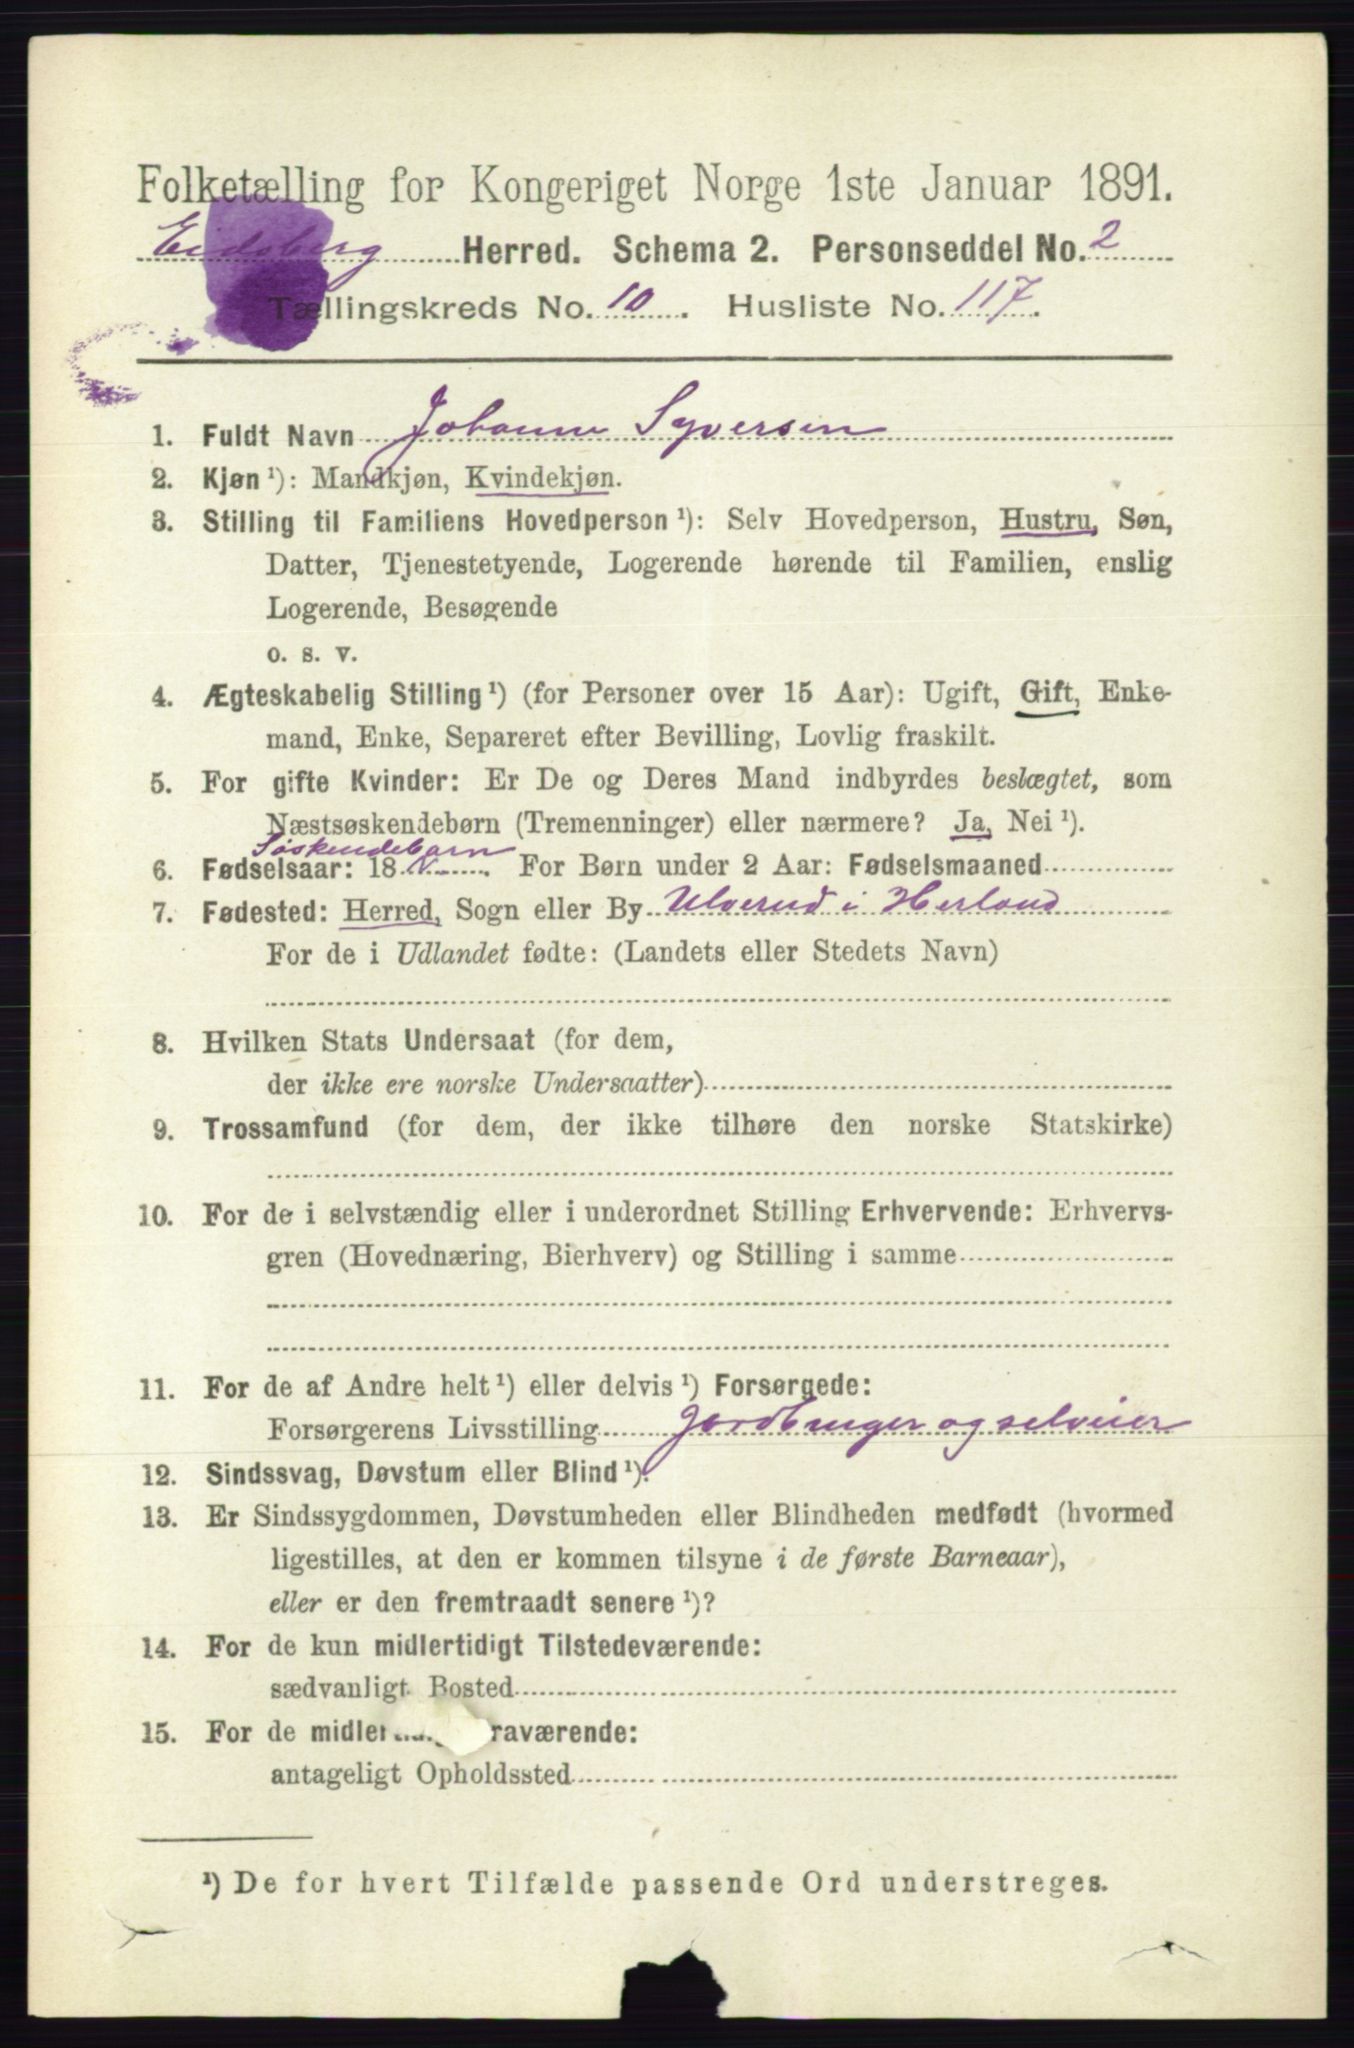 Folketælling for Kongeriget Norge 1ste Januar 1891.
Eidsberg Herred. Schema 2. Personseddel No. 2
Tællingskreds No. 10. Husliste No. 117.
1. Fuldt Navn Johanne Syversen
2. Kjøn ¹): Mandkjøn, Kvindekjøn.
3. Stilling til Familiens Hovedperson ¹): Selv Hovedperson, Hustru, Søn,
Datter, Tjenestetyende, Logerende hørende til Familien, enslig
Logerende, Besøgende
o. s. v.
4. Ægteskabelig Stilling ¹) (for Personer over 15 Aar): Ugift, Gift, Enke-
mand, Enke, Separeret efter Bevilling, Lovlig fraskilt.
5. For gifte Kvinder: Er De og Deres Mand indbyrdes beslægtet, som
Næstsøskendebørn (Tremenninger) eller nærmere? Ja, Nei ¹).
Søskendebarn
6. Fødselsaar: 18 . For Børn under 2 Aar: Fødselsmaaned
7. Fødested: Herred, Sogn eller By Ulverud i Herland
For de i Udlandet fødte: (Landets eller Stedets Navn)
8. Hvilken Stats Undersaat (for dem,
der ikke ere norske Undersaatter)
9. Trossamfund (for dem, der ikke tilhøre den norske Statskirke)
10. For de i selvstændig eller i underordnet Stilling Erhvervende: Erhvervs-
gren (Hovednæring, Bierhverv) og Stilling i samme
11. For de af Andre helt ¹) eller delvis ¹) Forsørgede:
Forsørgerens Livsstilling Jordbruger og selveier
12. Sindssvag, Døvstum eller Blind ¹).
13. Er Sindssygdommen, Døvstumheden eller Blindheden medfødt (hvormed
ligestilles, at den er kommen tilsyne i de første Barneaar),
eller er den fremtraadt senere ¹)?
14. For de kun midlertidigt Tilstedeværende:
sædvanligt Bosted
15. For de midler raværende:
antageligt Opholdssted
¹) De for hvert Tilfælde passende Ord understreges.